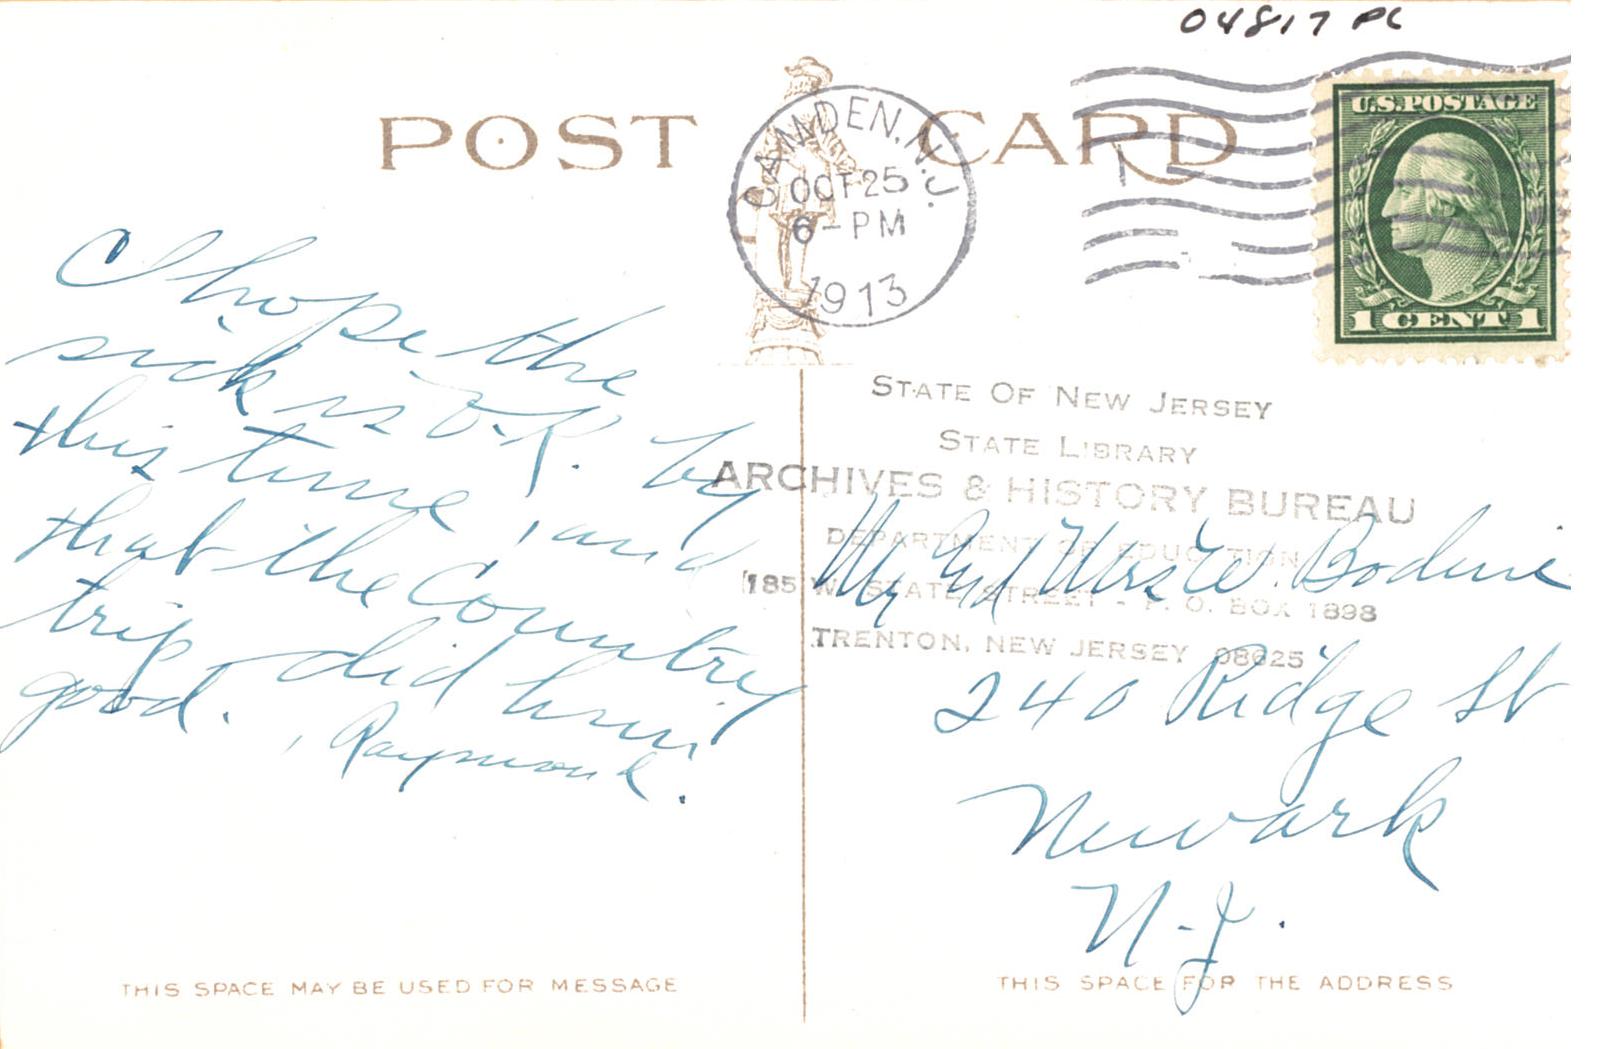 04817 PC
POST CARD
CAMDEN, N.J.
OCT 25
6-PM
1913
U.S. POSTAGE
1 CENT 1
I hope the
sick is O.K. by
this time, and
that the Country
trip did him
good. Raymond.
STATE OF NEW JERSEY
STATE LIBRARY
ARCHIVES & HISTORY BUREAU
DEPARTMENT OF EDUCATION
185 W. STATE STREET - P. O. BOX 1898
TRENTON, NEW JERSEY 08625
Mrs W. Bodine
240 Ridge St
Newark
N.J.
THIS SPACE MAY BE USED FOR MESSAGE
THIS SPACE FOR THE ADDRESS